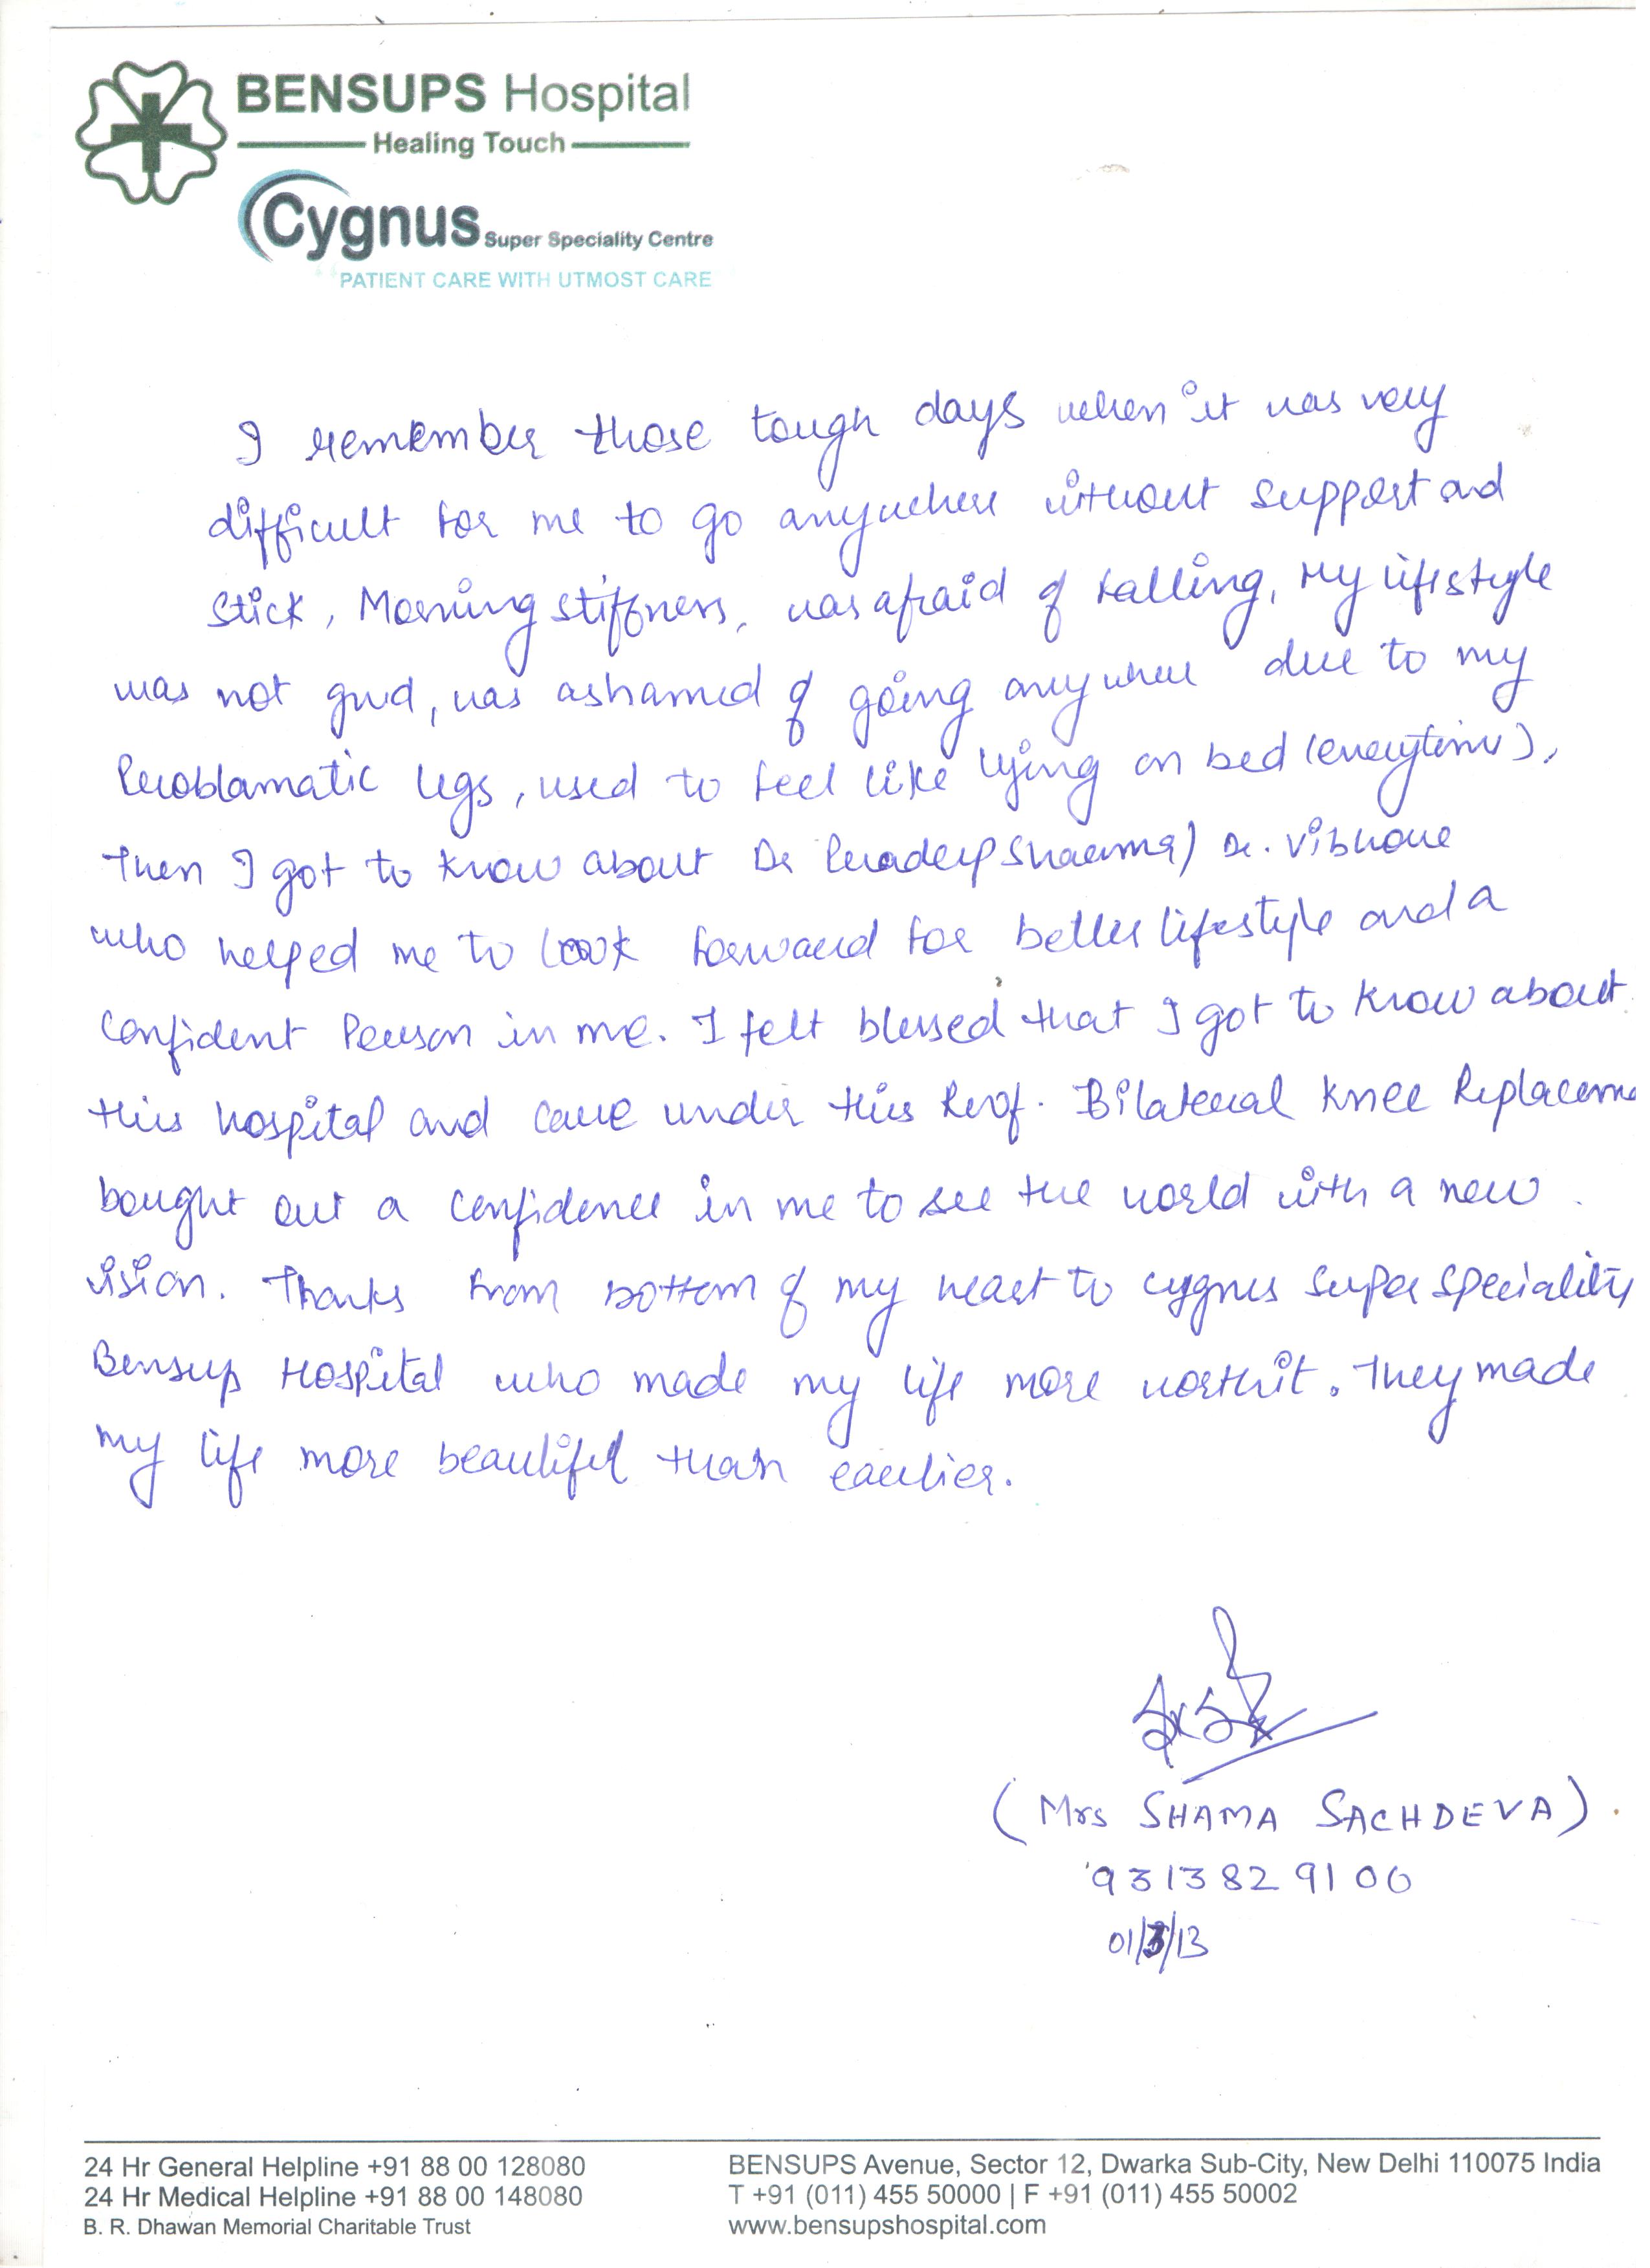 BENSUPS Hospital
Healing Touch
Cygnus Super Speciality Centre
PATIENT CARE WITH UTMOST CARE
I remember those tough days when it was very
difficult for me to go anywhere without support and
stick, Morning stiffness, was afraid of falling, My lifestyle
was not good, was ashamed of going anywhere due to my
Problamatic legs, used to feel like lying on bed (everytime),
Then I got to know about Dr Pradeep Sharma) Dr. Vibhore
who helped me to look forward for better lifestyle and a
Confident Person in me. I felt blessed that I got to know about
this hospital and came under this Roof. Bilateral Knee Replaceme
bought out a confidence in me to see the world with a new
vision. Thanks from bottom of my heart to cygnus super speciality
Bensup Hospital who made my life more worthit. They made
my life more beautiful than earlier.
(Mrs SHAMA SACHDEVA)
9313829100
01/3/13
24 Hr General Helpline +91 88 00 128080
24 Hr Medical Helpline +91 88 00 148080
B. R. Dhawan Memorial Charitable Trust
BENSUPS Avenue, Sector 12, Dwarka Sub-City, New Delhi 110075 India
T +91 (011) 455 50000 | F +91 (011) 455 50002
www.bensupshospital.com